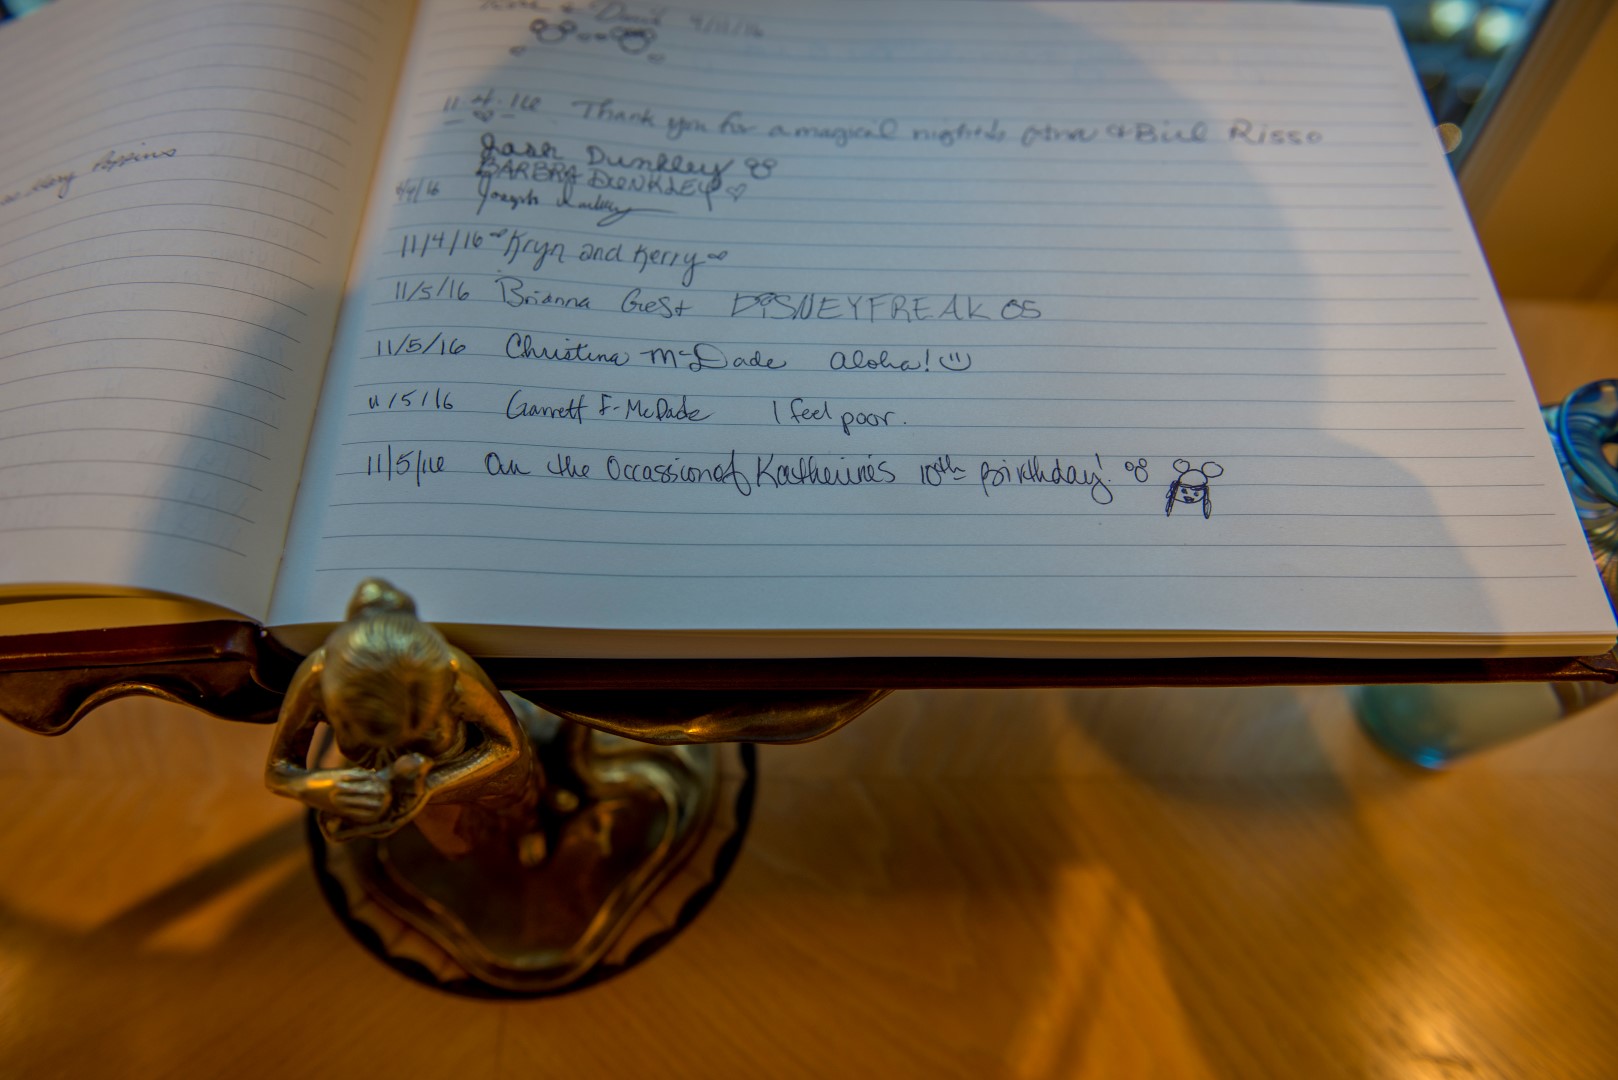 Mary Poppins
11 · 4 · 16 Thank you for a magical night & Bill Risso
Josh Dunkley
BARBRA DUNKLEY
Joseph
11/4/16 ~Kryn and Kerry~
11/5/16 Brianna Gest DISNEYFREAK 05
11/5/16 Christina McDade Aloha!
11/5/16 Garrett F. McDade I feel poor.
11/5/16 On the Occassion of Katherine's 10th Birthday!